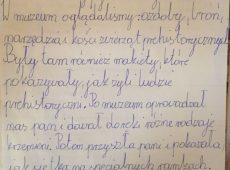 W muzeum oglądaliśmy ozdoby, broń,
narzędzia i kości zwierząt prehistorycznych.
Były tam również makiety, które
pokazywały, jak żyli ludzie
prehistoryczni. Po muzeum oprowadzał
nas pan i dawał do ręki różne rodzaje
krzemieni. Potem przyszła pani i pokazała
jak się tka na specjalnych ramkach.